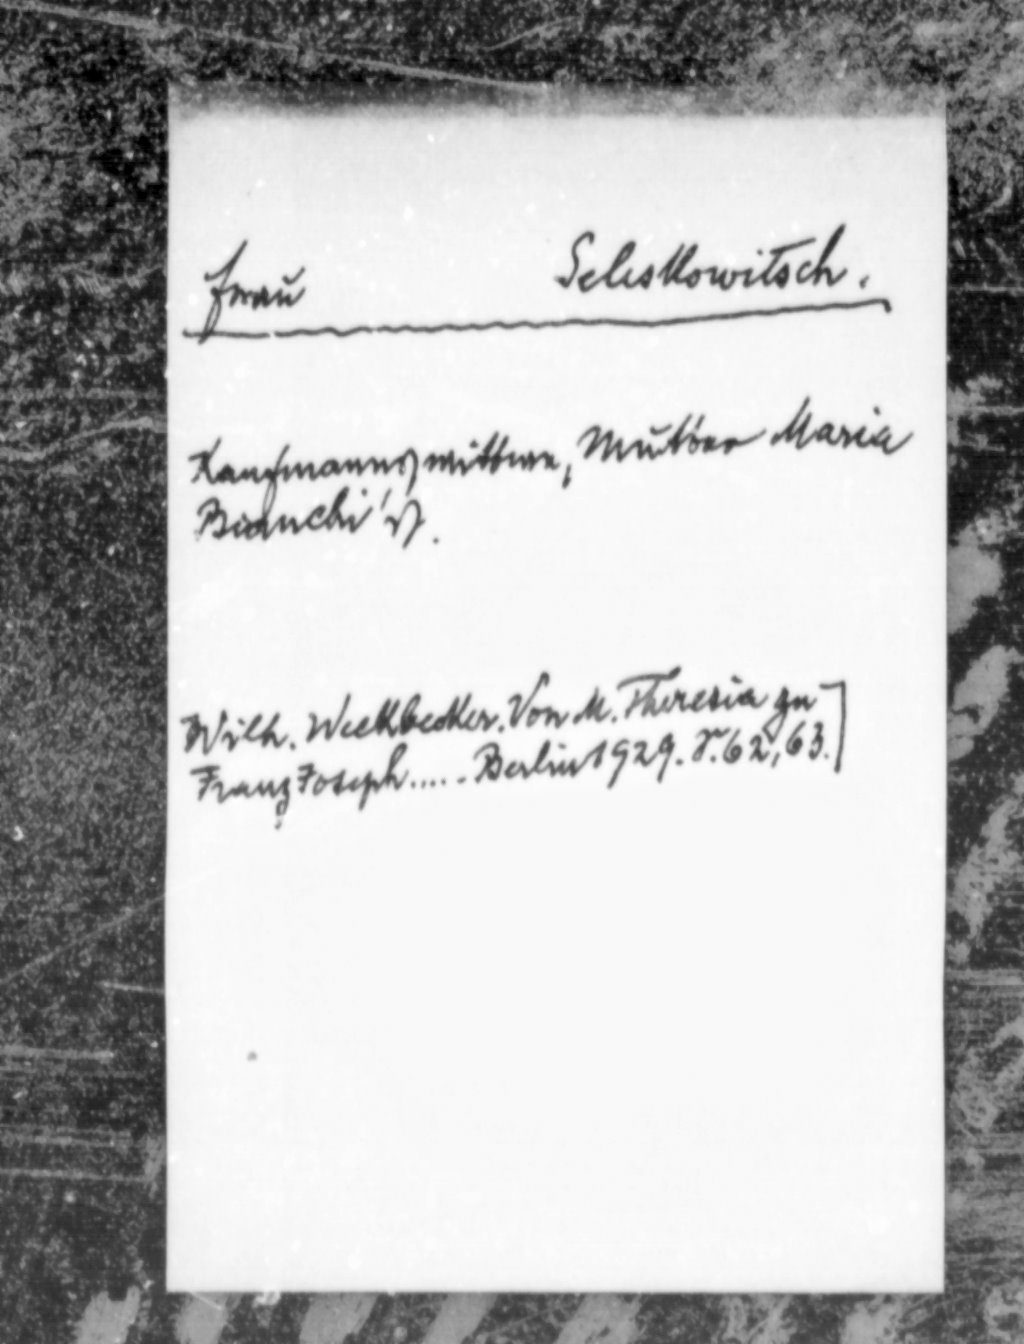 Frau Seleskowitsch.
Kaufmannswittwe, Mutter Maria
Bianchi's.
Wilh. Weckbecker. Von M. Theresia zu
Franz Joseph..... Berlin 1929. S. 62, 63.]